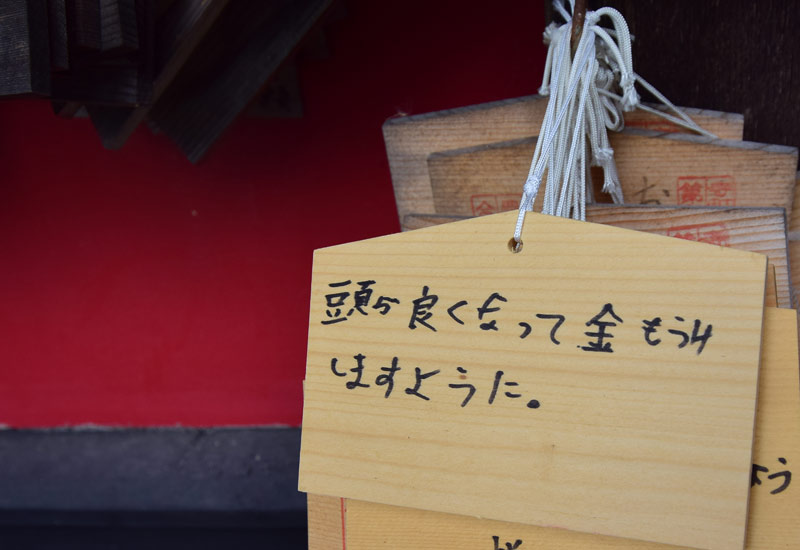 頭ら良くなって金もうけ
しますように。
お
ょう